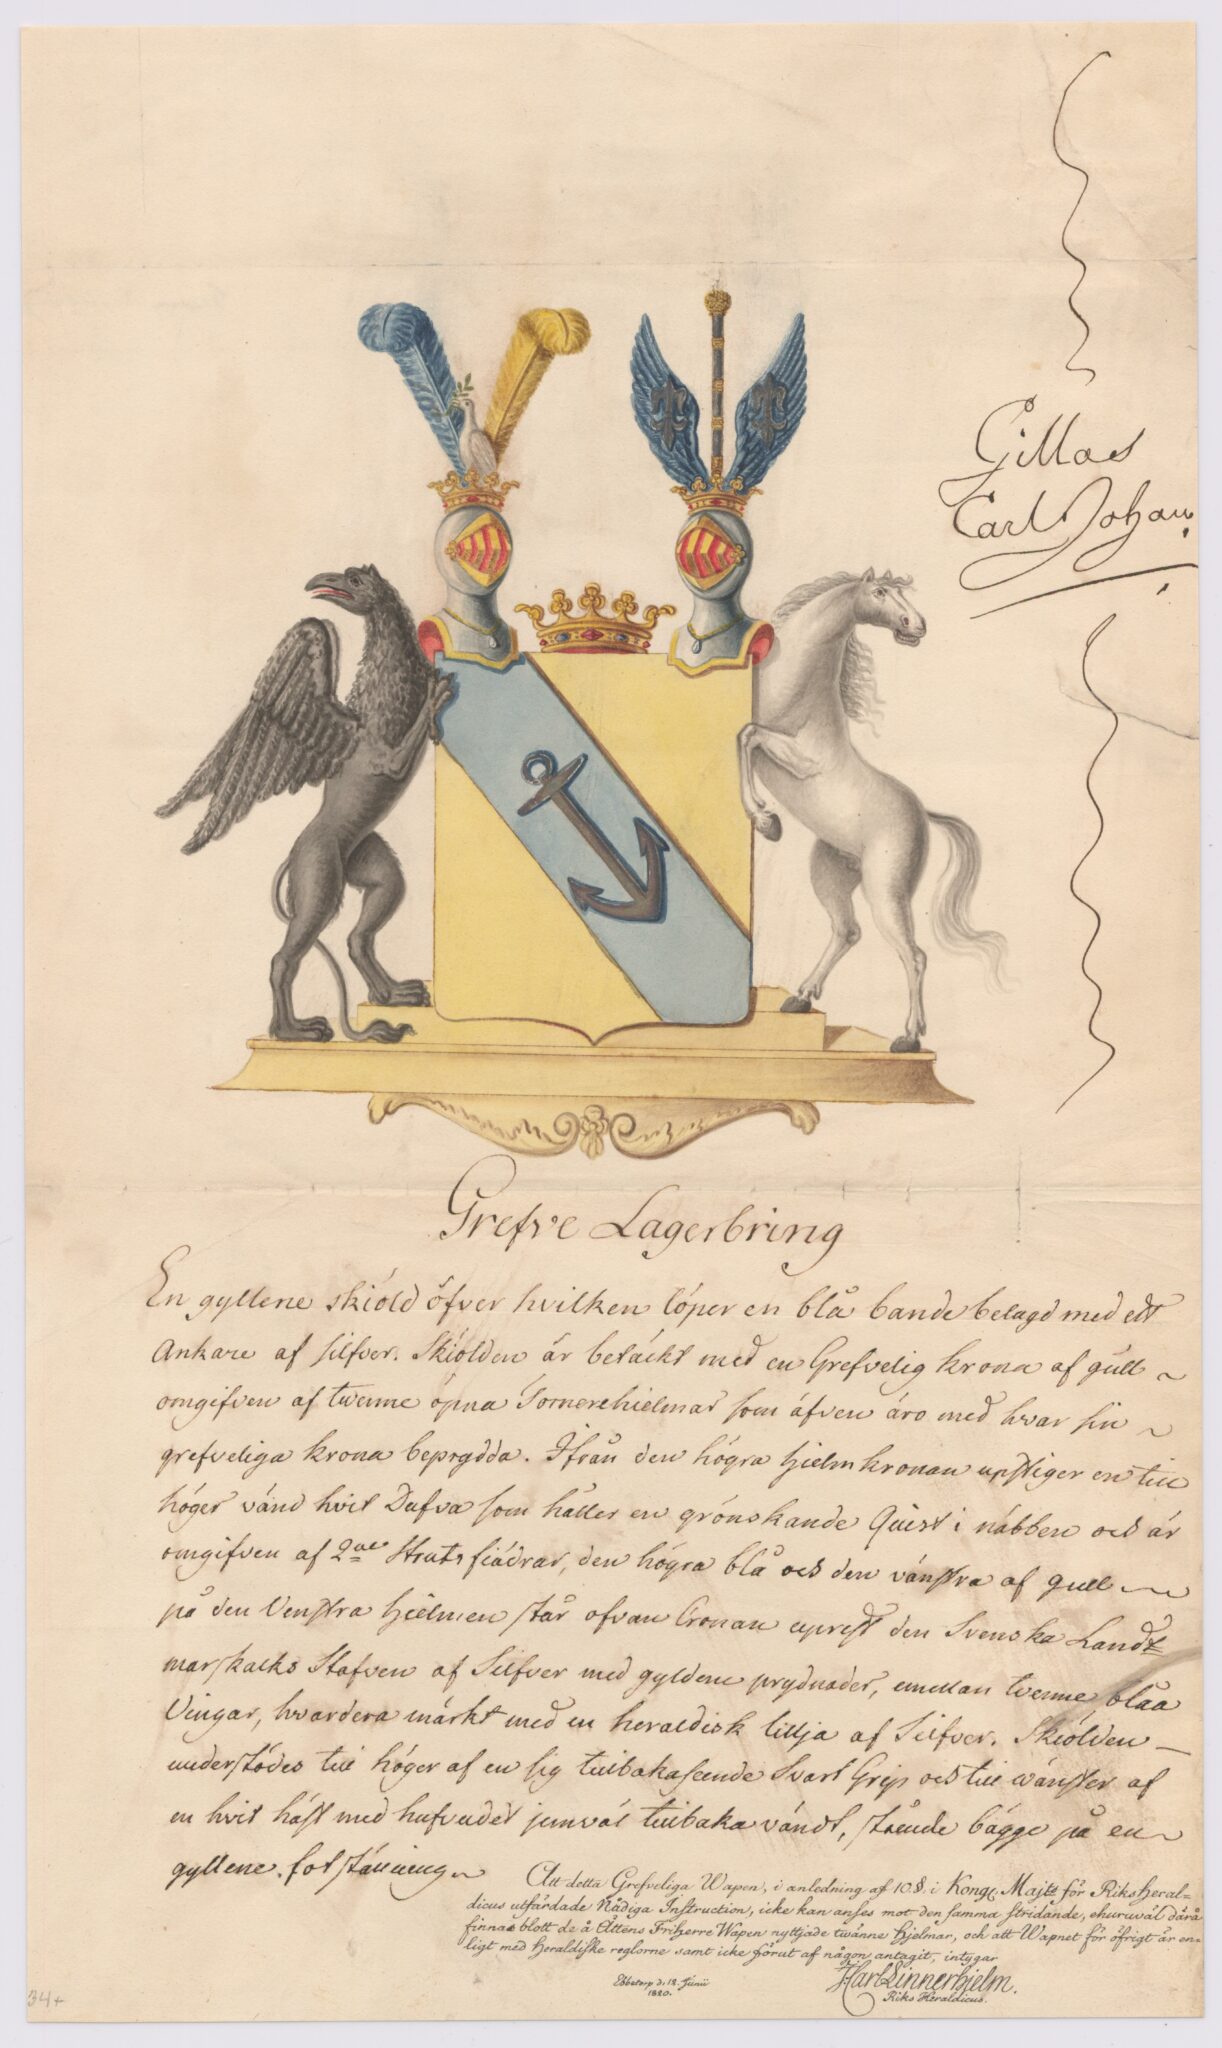 Gillas
Carl Johan.
Grefve Lagerbring
En gyllene skiöld öfver hvilken löper en blå bande belagd med ett
Ankare af silfver. Skiölden är betäckt med en Grefvelig krona af gull ~
omgifven af twenne öpna Tornerehielmar som äfven äro med hvar sin ~
grefveliga krona beprydda. Ifrån den högra hielmkronan upstiger en till
höger vänd hvit Dufva som håller en grönskande Quist i näbben och är
omgifven af 2ne Strutsfiädrar, den högra blå och den vänstra af gull ~
på den Venstra hielmen står ofvan Cronan uprest den Svenska Landt
marskalks Stafven af Silfver med gyldene prydnader, emellan tvenne blåa
Vingar, hvardera märkt med en heraldisk lillja af Silfver. Skiölden —
understödes till höger af en sig tillbakaseende Svart Grip och till wänster af
en hvit häst med hufvudet jemväl tillbaka vändt, stående bägge på en ~
gyllene fotställning ~
Att detta Grefveliga Wapen, i anledning af 10.§. i Kongl. Majts för RiksHeral-
dicus utfärdade Nådiga Instruction, icke kan anses mot den samma stridande, ehuruväl därå
finnas blott de å Ättens FriHerre Wapen nyttjade twänne Hjelmar, och att Wapnet för öfrigt är en-
ligt med Heraldiske reglorne samt icke förut af någon antagit, intygar
Ebbetorp d. 12. Junii
1820.
Jonas Carl Linnerhjelm.
Riks Heraldicus.
34+